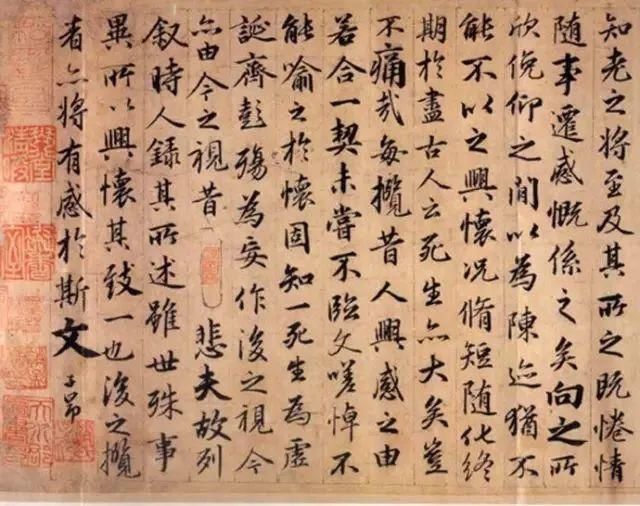 知老之將至及其所之既惓情
隨事遷感慨係之矣向之所
欣俛仰之間以為陳迹猶不
能不以之興懷況脩短隨化終
期於盡古人云死生亦大矣豈
不痛哉每攬昔人興感之由
若合一契未嘗不臨文嗟悼不
能喻之於懷固知一死生為虛
誕齊彭殤為妄作後之視今
亦由今之視昔 悲夫故列
叙時人錄其所述雖世殊事
異所以興懷其致一也後之攬
者亦將有感於斯文 子昂